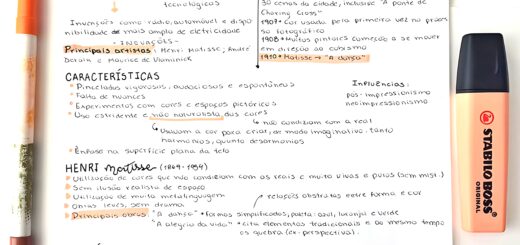 tecnológicos
Invenções como rádio, automóvel e dispo
nibilidade de mais amplo de eletricidade
- INOVAÇÕES -
Principais artistas: Henri Matisse, André
Derain e Maurice de Vlaminck
30 cenas da cidade, inclusive "A ponte de
Charing Cross"
1907 • Cor usada pela primeira vez no proces
so fotográfico
1908 • Muitos pintores começam a se mover
em direção ao cubismo
1910 • Matisse → "A dança"
CARACTERÍSTICAS
Pinceladas vigorosas, audaciosas e espontâneas
Falta de nuances
Experimentos com cores e espaços pictóricos
Uso estridente e não naturalista das cores
↳ não condiziam com a real
↳ Usavam a cor para criar, de modo imaginativo, tanto
harmonias, quanto desarmonias
Ênfase na superfície plana da tela
Influências:
pós-impressionismo
neoimpressionismo
HENRI matisse (1869-1954)
Utilização de cores que não condiziam com as reais e muito vivas e puras (sem mist.)
Sem ilusão realista de espaço
Utilização de muito metalinguagem
Obras leves, sem drama
↗ relações abstratas entre forma e cor
Principais obras: "A dança" • formas simplificadas, paleta: azul, laranja e verde
"A alegria da vida" • cita elementos tradicionais e ao mesmo tempo
os quebra (ex: perspectiva).
STABILO BOSS
ORIGINAL